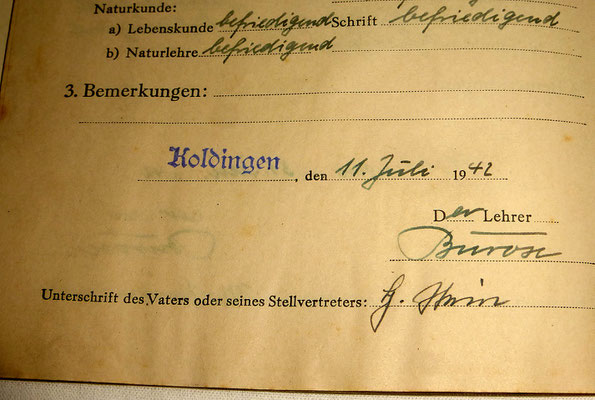 Naturkunde:
a) Lebenskunde befriedigend Schrift befriedigend
b) Naturlehre befriedigend
3. Bemerkungen:
Koldingen, den 11. Juli 1942
Der Lehrer
Burose
Unterschrift des Vaters oder seines Stellvertreters: H.